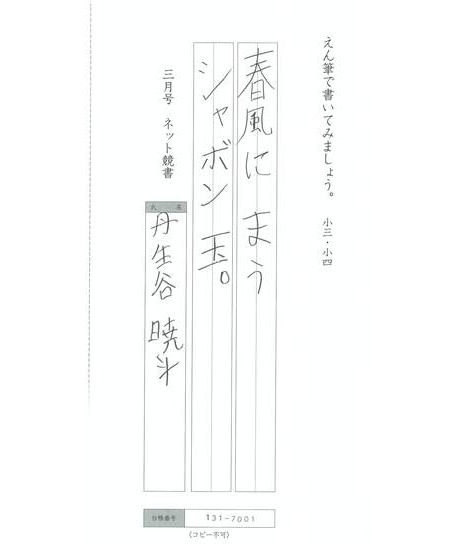 えん筆で書いてみましょう。 小三・小四
春風に まう
シャボン玉。
三月号 ネット競書
氏名
丹生谷 暁斗
台帳番号 131-7001
(コピー不可)